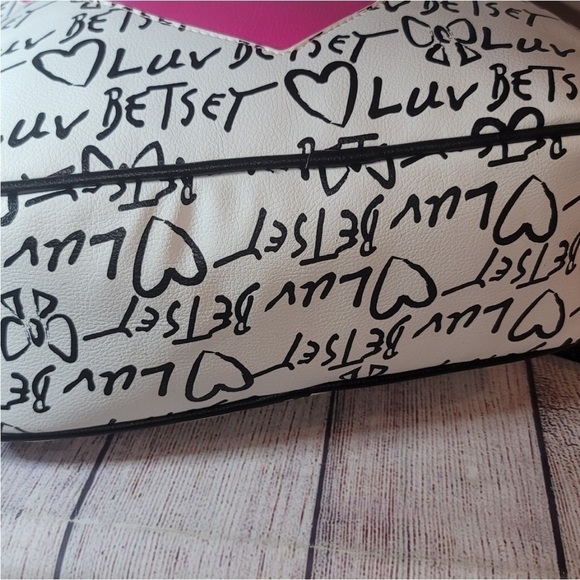 LUV BETSEY
LUV BETSEY LUV
LUV BETSEY LUV BETSEY
BETSEY
LUV BETSEY LUV
BETSEY LUV BETSEY
BETSEY LUV BETSEY LUV